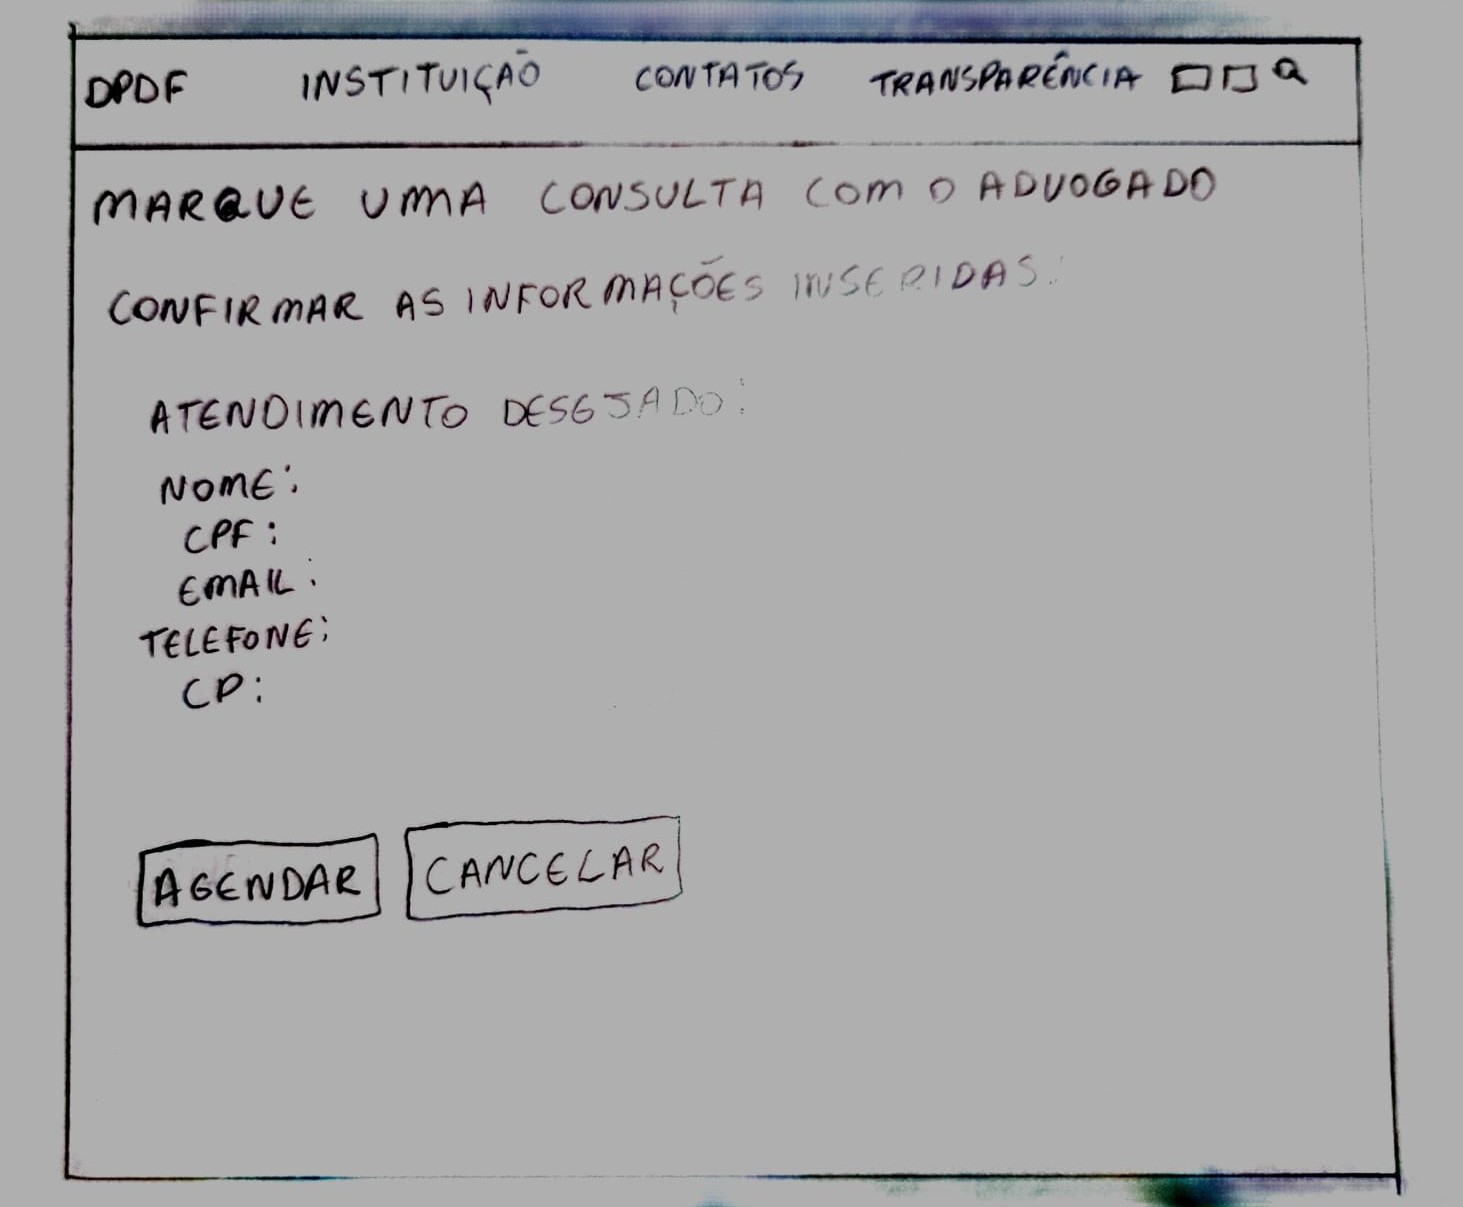 DPDF INSTITUIÇÃO CONTATOS TRANSPARÊNCIA
MARQUE UMA CONSULTA COM O ADVOGADO
CONFIRMAR AS INFORMAÇÕES INSERIDAS:
ATENDIMENTO DESEJADO:
NOME:
CPF:
EMAIL:
TELEFONE:
CP:
AGENDAR CANCELAR